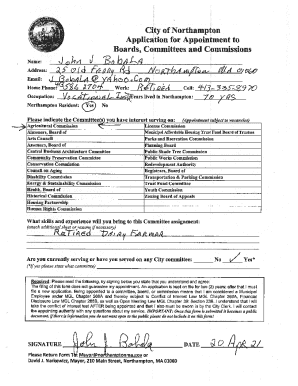 City of Northampton
Application for Appointment to
Boards, Committees and Commissions
Name: John J Bobala
Address: 25 Old Ferry Rd Northampton MA 01060
Email: J Bobala@yahoo.com
Home Phone: 586 2704 Work: Retired Cell: 413-335-8970
Occupation: Vocational Years lived in Northampton: 70 yrs
Northampton Resident: Yes No
Please indicate the Committee(s) you have interest serving on: (Appointment subject to vacancies)
Agricultural Commission License Commission
Assessors, Board of Municipal Affordable Housing Trust Fund Board of Trustees
Arts Council Parks and Recreation Commission
Assessors, Board of Planning Board
Central Business Architecture Committee Public Shade Tree Commission
Community Preservation Committee Public Works Commission
Conservation Commission Redevelopment Authority
Council on Aging Registrars, Board of
Disability Commission Transportation & Parking Commission
Energy & Sustainability Commission Trust Fund Committee
Health, Board of Youth Commission
Historical Commission Zoning Board of Appeals
Housing Partnership
Human Rights Commission
What skills and experience will you bring to this Committee assignment:
(attach additional sheet or resume if necessary)
Retired Dairy Farmer
Are you currently serving or have you served on any City committee: No Yes*
(*If you please state what committee)
Required: Please read the following, by signing below you state that you understand and agree:
SIGNATURE John J Bobala DATE 20 Apr 21
Please Return Form To: Mayor@northamptonma.gov or
David J. Narkewicz, Mayor, 210 Main Street, Northampton, MA 01060